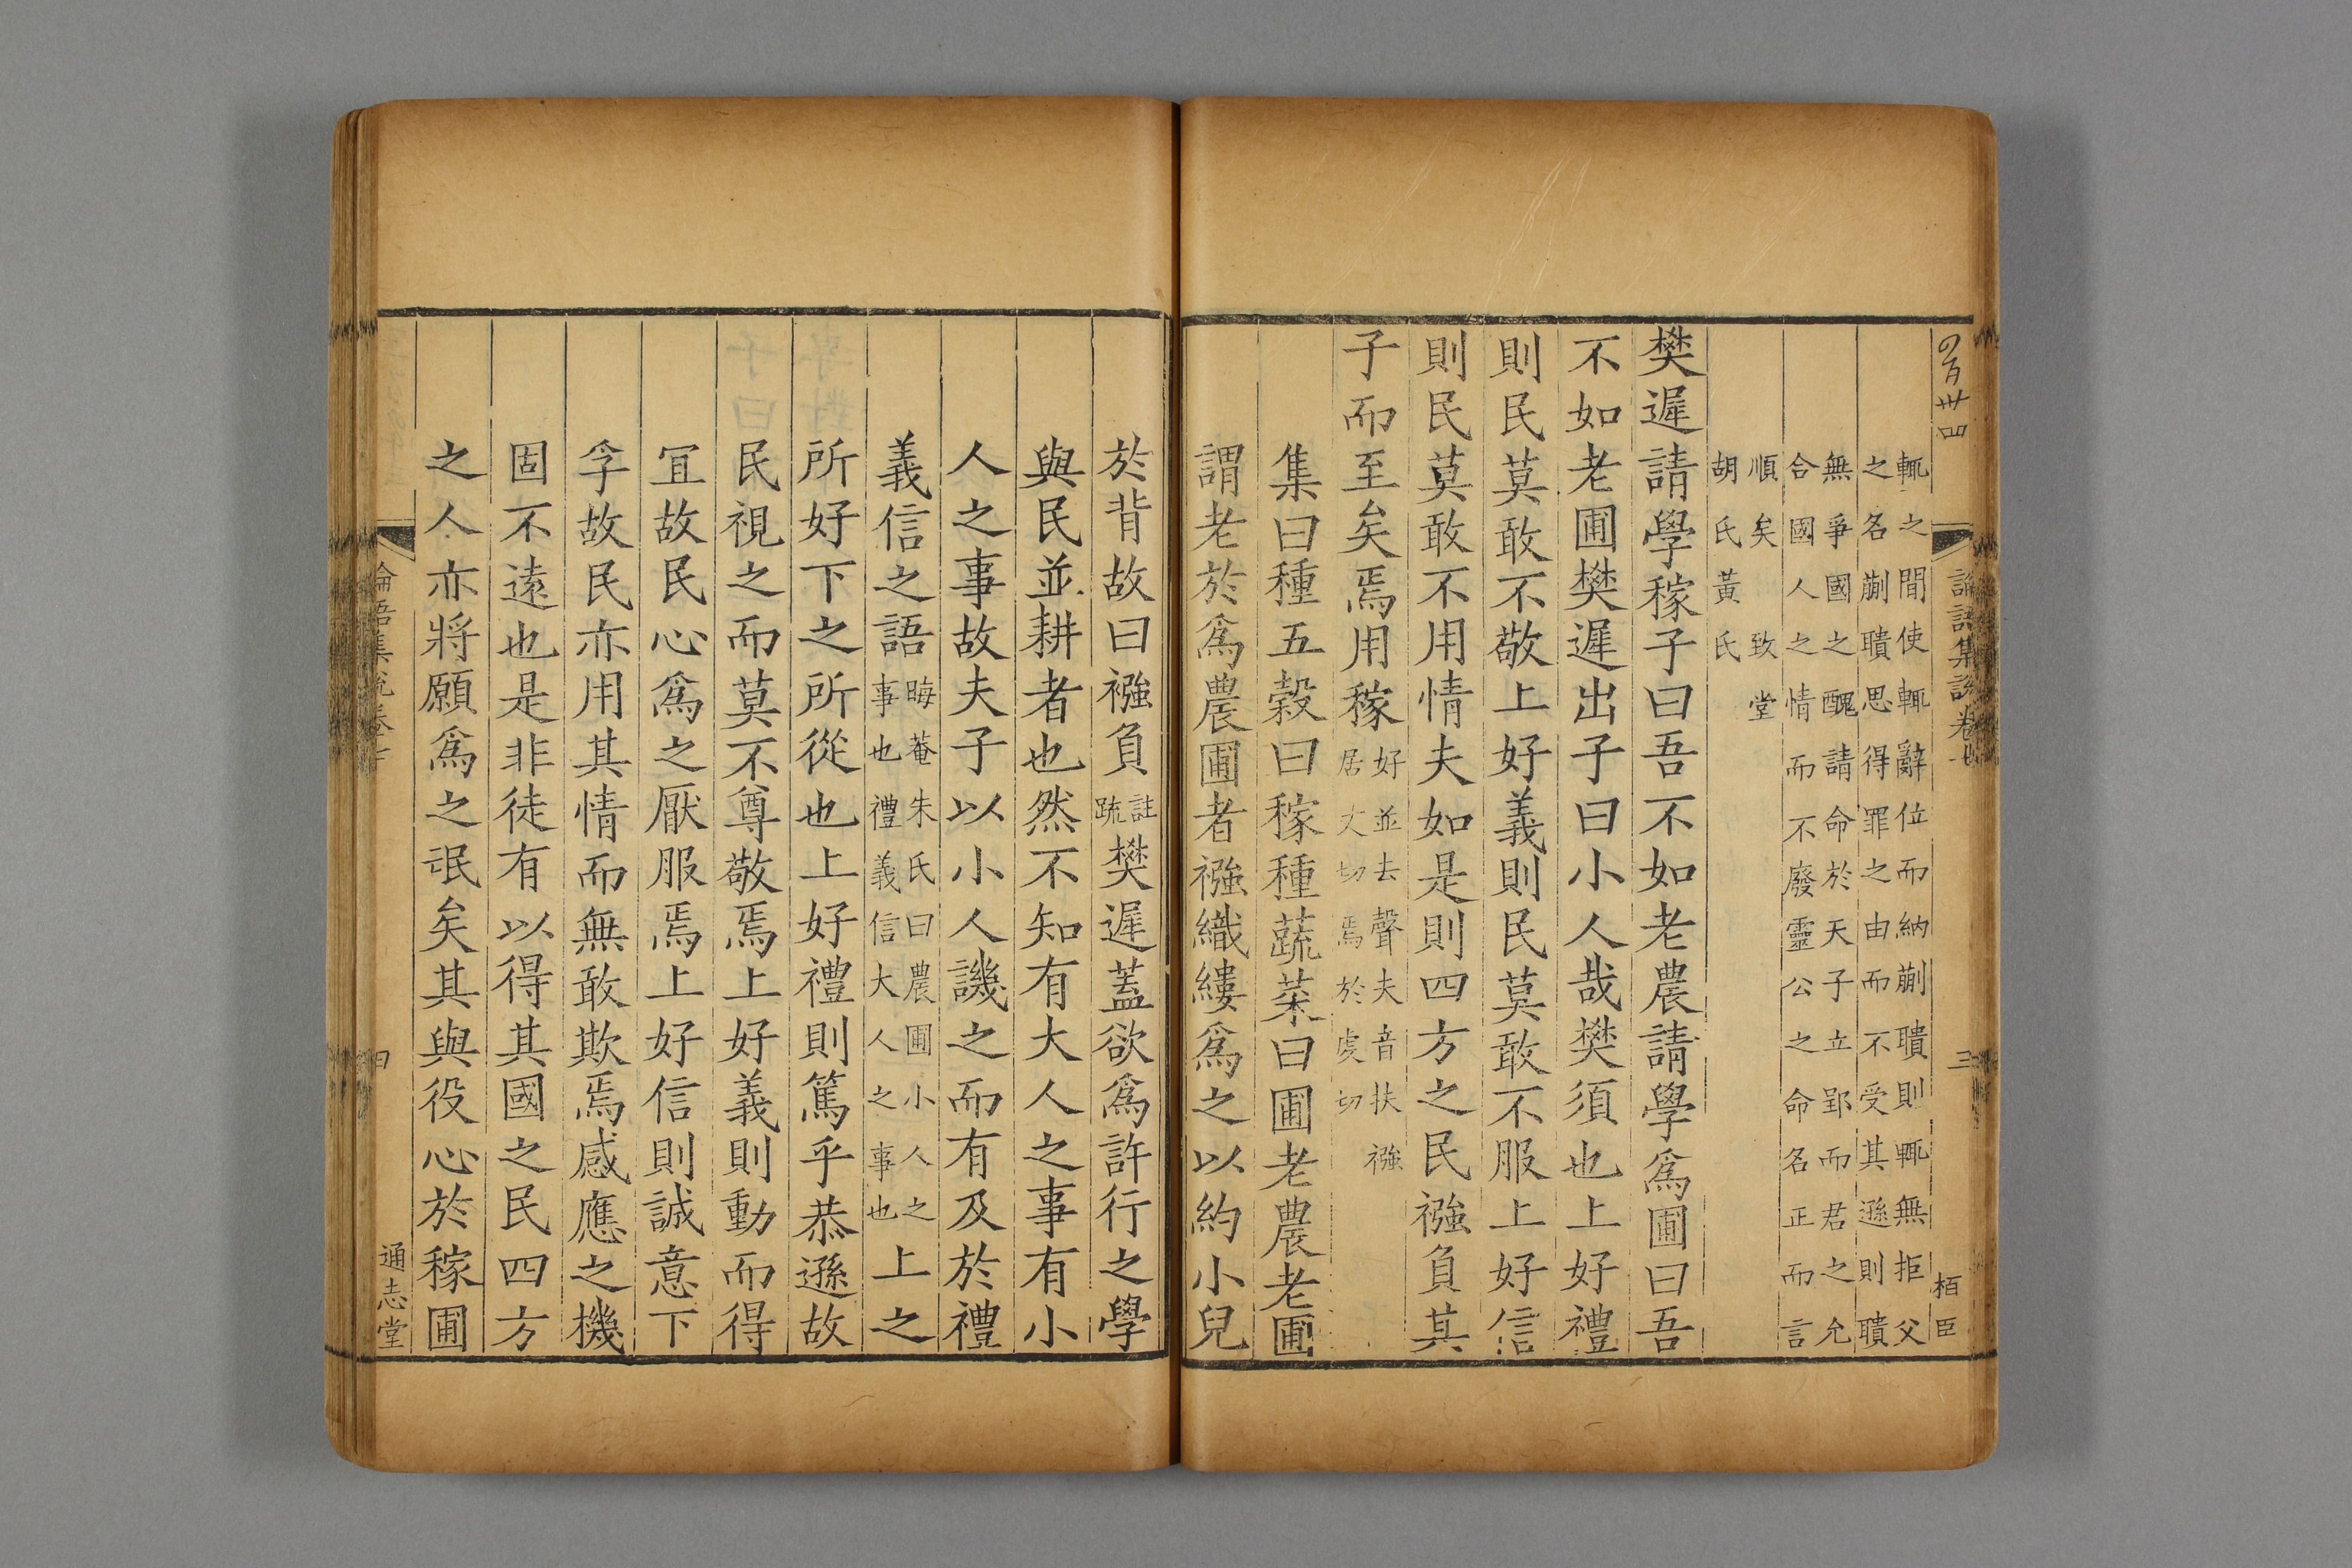 論語集說卷七
三
栢臣
輒之間使輒辭位而納蒯聵則輒無拒父
之名蒯聵思得罪之由而不受其遜則聵
無爭國之醜請命於天子立郢而君之允
合國人之情而不廢靈公之命名正而言
順矣致堂
胡氏黃氏
樊遲請學稼子曰吾不如老農請學爲圃曰吾
不如老圃樊遲出子曰小人哉樊須也上好禮
則民莫敢不敬上好義則民莫敢不服上好信
則民莫敢不用情夫如是則四方之民襁負其
子而至矣焉用稼
好並去聲夫音扶襁
居丈切焉於虔切
集曰種五榖曰稼種蔬菜曰圃老農老圃
謂老於爲農圃者襁織縷爲之以約小兒
於背故曰襁負註疏樊遲蓋欲爲許行之學
與民並耕者也然不知有大人之事有小
人之事故夫子以小人譏之而有及於禮
義信之語
晦菴朱氏曰農圃小人之
事也禮義信大人之事也
上之
所好下之所從也上好禮則篤乎恭遜故
民視之而莫不尊敬焉上好義則動而得
冝故民心爲之厭服焉上好信則誠意下
孚故民亦用其情而無敢欺焉感應之機
固不遠也是非徒有以得其國之民四方
之人亦將願爲之氓矣其與役心於稼圃
論語集說卷七
四
通志堂